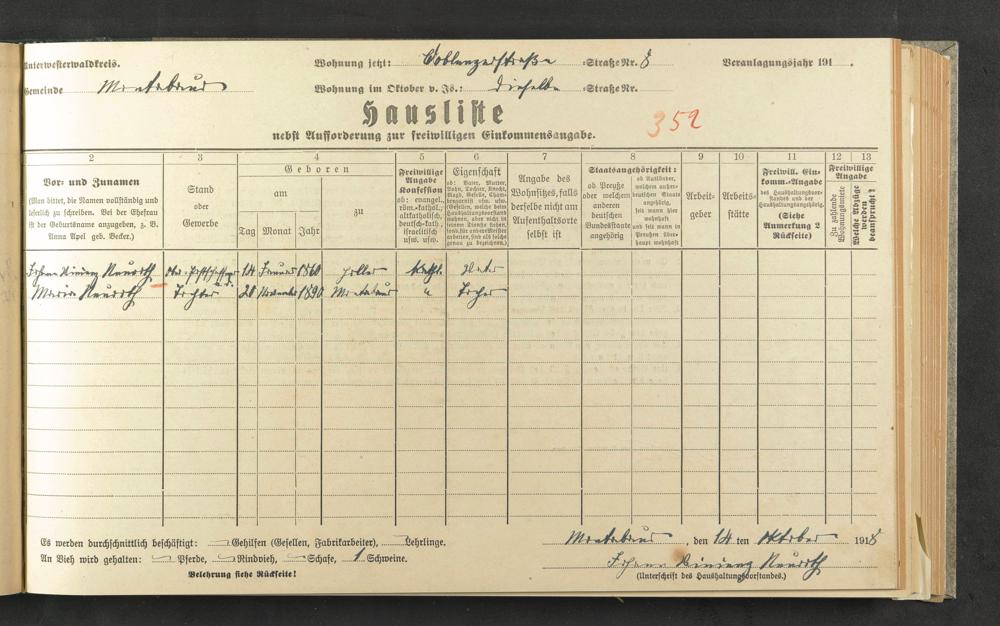 Unterwesterwaldkreis.
Wohnung jetzt: Coblenzerstraße -Straße Nr. 8
Veranlagungsjahr 191 .
Gemeinde Montabaur
Wohnung im Oktober v. Js.: dieselbe -Straße Nr.
Hausliste
352
nebst Aufforderung zur freiwilligen Einkommensangabe.
2 3 4 5 6 7 8 9 10 11 12 13
Vor- und Zunamen
(Man bittet, die Namen vollständig und
leserlich zu schreiben. Bei der Ehefrau
ist der Geburtsname anzugeben, z. B.
Anna Apel geb. Becker.)
Stand
oder
Gewerbe
Geboren
am
zu
Tag Monat Jahr
Freiwillige
Angabe
Konfession
ob: evangel.,
röm.-kathol.,
altkatholisch,
deutsch-kath.,
israelitisch
usw. usw.
Eigenschaft
ob: Vater, Mutter,
Sohn, Tochter, Knecht,
Magd, Geselle,
Angabe des
Wohnsitzes, falls
derselbe nicht am
Aufenthaltsorte
selbst ist
Staatsangehörigkeit:
ob Preuße
oder welchem
anderen
deutschen
Bundesstaate
angehörig
ob Ausländer,
welchem außer-
deutschen Staate
angehörig,
seit wann hier
wohnhaft
und seit wann in
Preußen über-
haupt wohnhaft
Arbeit-
geber
Arbeits-
stätte
Freiwill. Ein-
komm.-Angabe
des Haushaltungsvor-
standes und der
Haushaltungsangehörig.
(Siehe
Anmerkung 2
Rückseite)
Freiwillige
Angabe
Zu zahlende
Wohnungsmiete
Welche Abzüge
werden
beansprucht?
Johann Neuroth 14 Januar 1860 Holler kath. Vater
Maria Neuroth Tochter 20 November 1890 Montabaur " Tochter
Es werden durchschnittlich beschäftigt: — Gehilfen (Gesellen, Fabrikarbeiter), — Lehrlinge.
An Vieh wird gehalten: — Pferde, — Rindvieh, — Schafe, 1 Schweine.
Belehrung siehe Rückseite!
Montabaur, den 14 ten Oktober 1918
Johann Neuroth
(Unterschrift des Haushaltungsvorstandes.)